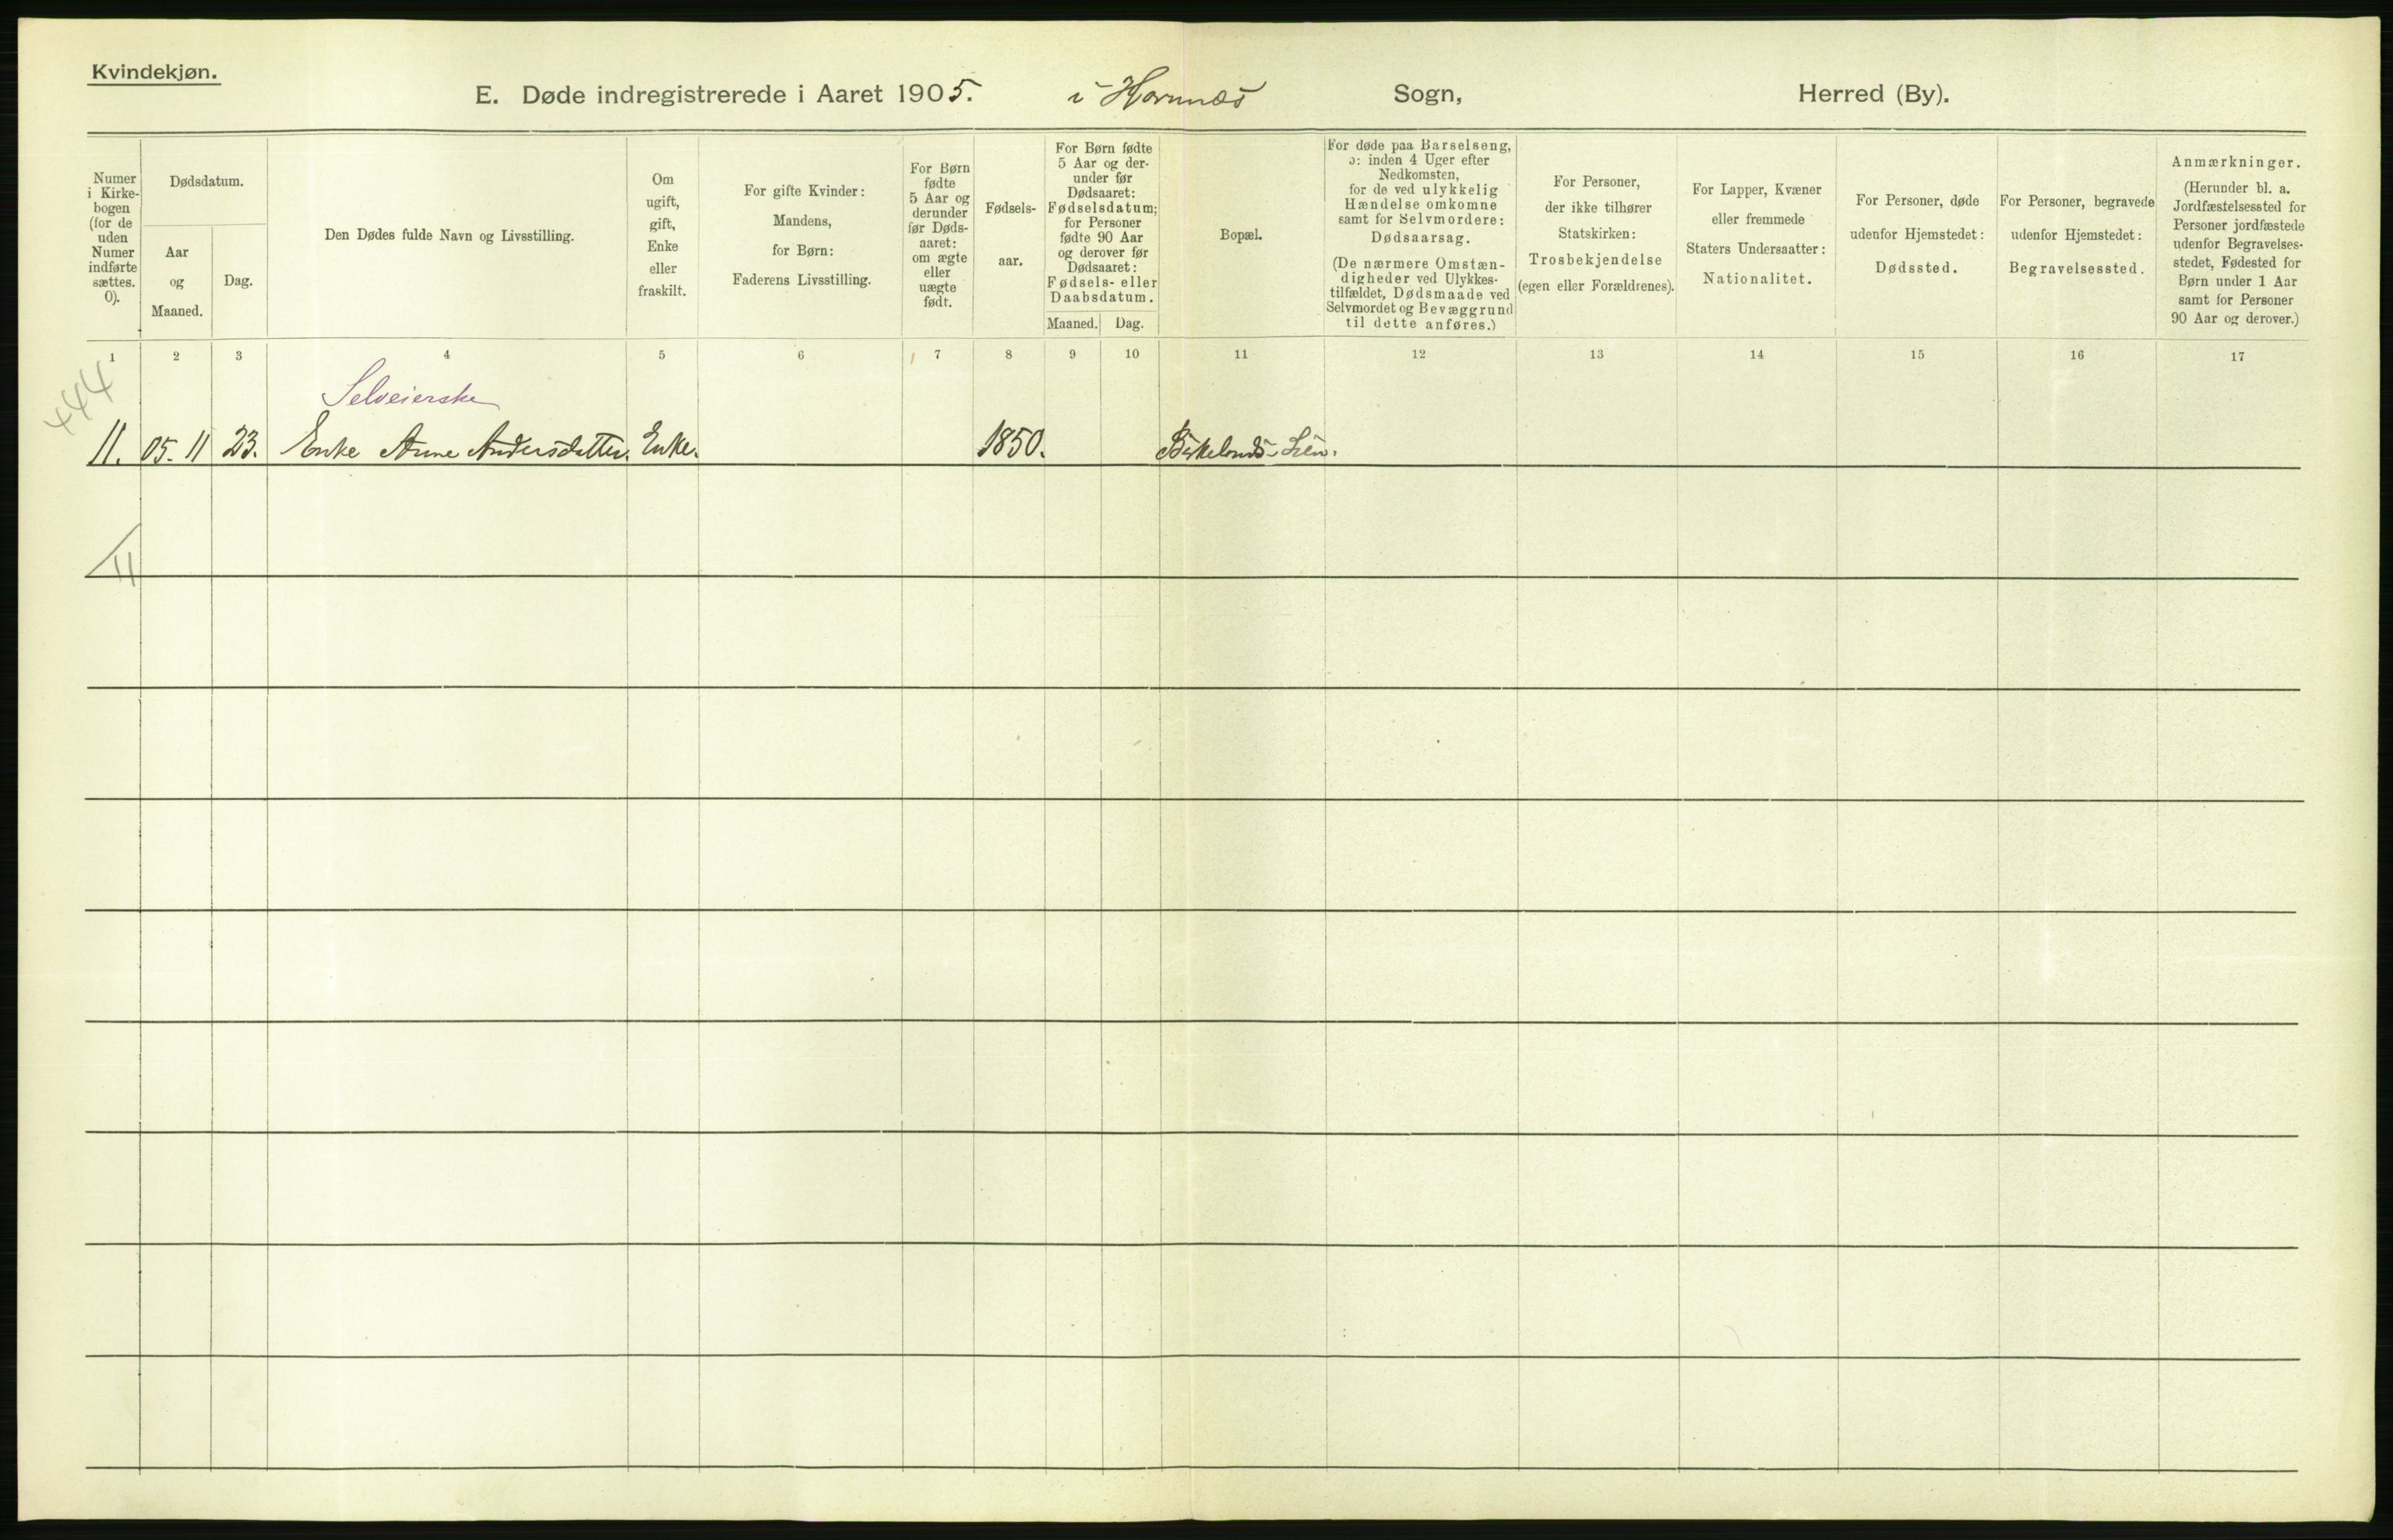 Kvindekjøn.
E. Døde indregistrerede i Aaret 1905. i Hornnes Sogn, Herred (By).
Numer i Kirkebogen (for de uden Numer indførte sættes. 0).
Dødsdatum.
Aar og Maaned.
Dag.
Den Dødes fulde Navn og Livsstilling.
Om ugift, gift, Enke eller fraskilt.
For gifte Kvinder: Mandens, for Børn: Faderens Livsstilling.
For Børn fødte 5 Aar og derunder før Dødsaaret: om ægte eller uægte født.
Fødselsaar.
For Børn fødte 5 Aar og derunder før Dødsaaret: Fødselsdatum; for Personer fødte 90 Aar og derover før Dødsaaret: Fødsels- eller Daabsdatum.
Maaned. Dag.
Bopæl.
For døde paa Barselseng, ɔ: inden 4 Uger efter Nedkomsten, for de ved ulykkelig Hændelse omkomne samt for Selvmordere: Dødsaarsag. (De nærmere Omstændigheder ved Ulykkestilfældet, Dødsmaade ved Selvmordet og Bevæggrund til dette anføres.)
For Personer, der ikke tilhører Statskirken: Trosbekjendelse (egen eller Forældrenes).
For Lapper, Kvæner eller fremmede Staters Undersaatter: Nationalitet.
For Personer, døde udenfor Hjemstedet: Dødssted.
For Personer, begravede udenfor Hjemstedet: Begravelsessted.
Anmærkninger. (Herunder bl. a. Jordfæstelsessted for Personer jordfæstede udenfor Begravelsesstedet, Fødested for Børn under 1 Aar samt for Personer 90 Aar og derover.)
1 2 3 4 5 6 7 8 9 10 11 12 13 14 15 16 17
444
Selveierske
11. 05. 11 23. Enke Anne Andersdatter. Enke. 1850. Birkelands-Lien.
11